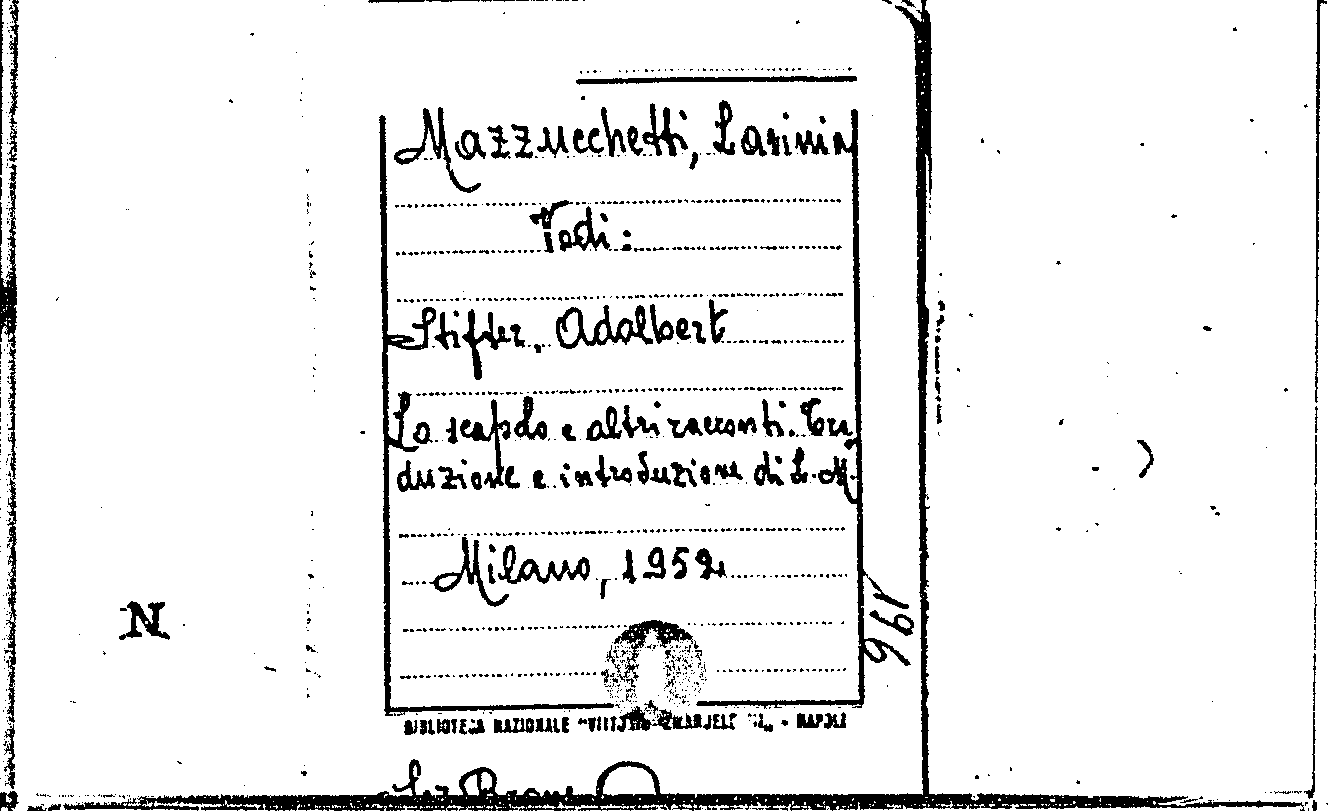 Mazzucchetti, Lavinia
Vedi:
Stifter, Adalbert
Lo scapolo e altri racconti. Tra
duzione e introduzione di L. M.
Milano, 1952
196
N
BIBLIOTECA NAZIONALE "VITTORIO EMANUELE III„ - NAPOLI